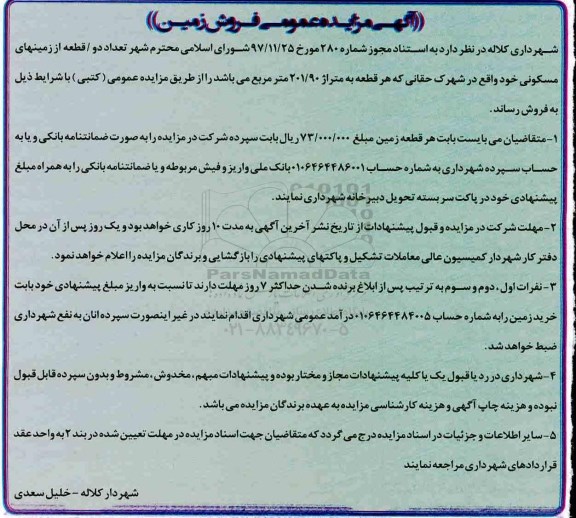 ((آگهی مزایده عمومی فروش زمین))
شهرداری کلاله در نظر دارد به استناد مجوز شماره ۲۸۰ مورخ ۹۷/۱۱/۲۵ شورای اسلامی محترم شهر تعداد دو / قطعه از زمینهای
مسکونی خود واقع در شهرک حقانی که هر قطعه به متراژ ۲۰۱/۹۰ متر مربع می باشد را از طریق مزایده عمومی (کتبی) با شرایط ذیل
به فروش رساند.
۱- متقاضیان می بایست بابت هر قطعه زمین مبلغ ۷۳/۰۰۰/۰۰۰ ریال بابت سپرده شرکت در مزایده را به صورت ضمانتنامه بانکی و یا به
حساب سپرده شهرداری به شماره حساب ۰۱۰۶۴۶۴۴۸۶۰۰۱ بانک ملی واریز و فیش مربوطه و یا ضمانتنامه بانکی را به همراه مبلغ
پیشنهادی خود در پاکت سربسته تحویل دبیرخانه شهرداری نمایند.
۲- مهلت شرکت در مزایده و قبول پیشنهادات از تاریخ نشر آخرین آگهی به مدت ۱۰ روز کاری خواهد بود و یک روز پس از آن در محل
دفتر کار شهردار کمیسیون عالی معاملات تشکیل و پاکتهای پیشنهادی را بازگشایی و برندگان مزایده را اعلام خواهد نمود.
ParsNamadData
۳- نفرات اول، دوم و سوم به ترتیب پس از ابلاغ برنده شدن حداکثر ۷ روز مهلت دارند تا نسبت به واریز مبلغ پیشنهادی خود بابت
خرید زمین را به شماره حساب ۰۱۰۶۴۶۴۴۸۴۰۰۵ درآمد عمومی شهرداری اقدام نمایند در غیر اینصورت سپرده انان به نفع شهرداری
۰۲۱-۸۸۳۴۹۶۷۰-۵
ضبط خواهد شد.
۴- شهرداری در رد یا قبول یک یا کلیه پیشنهادات مجاز و مختار بوده و پیشنهادات مبهم، مخدوش، مشروط و بدون سپرده قابل قبول
نبوده و هزینه چاپ آگهی و هزینه کارشناسی مزایده به عهده برندگان مزایده می باشد.
۵- سایر اطلاعات و جزئیات در اسناد مزایده درج می گردد که متقاضیان جهت اسناد مزایده در مهلت تعیین شده در بند ۲ به واحد عقد
قراردادهای شهرداری مراجعه نمایند
شهردار کلاله - خلیل سعدی